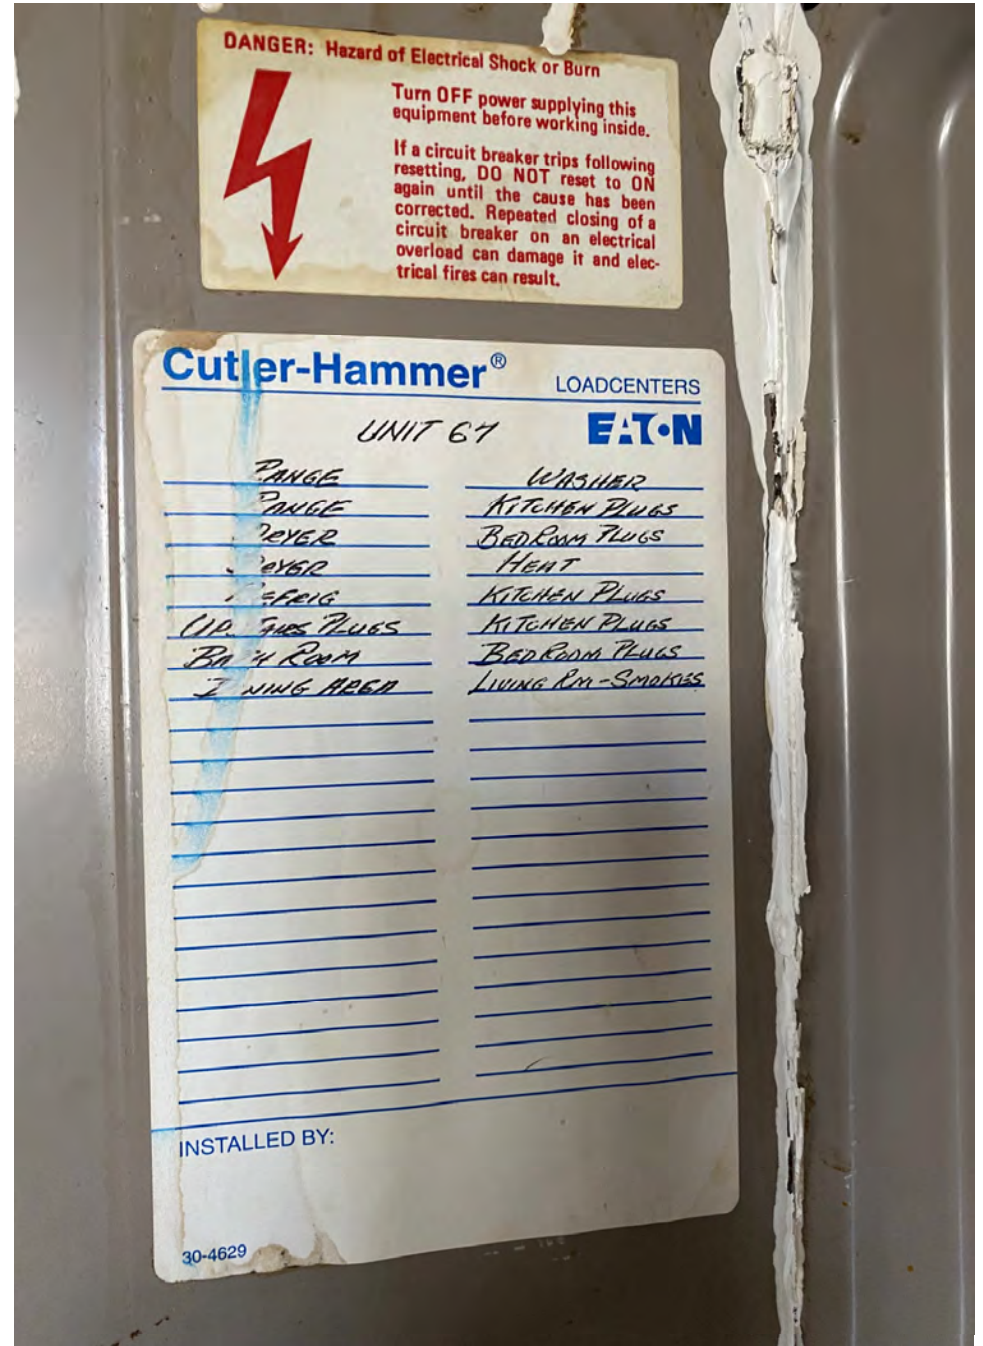 DANGER: Hazard of Electrical Shock or Burn
Turn OFF power supplying this
equipment before working inside.
If a circuit breaker trips following
resetting, DO NOT reset to ON
again until the cause has been
corrected. Repeated closing of a
circuit breaker on an electrical
overload can damage it and elec-
trical fires can result.
Cutler-Hammer® LOADCENTERS
EATON
UNIT 67
RANGE WASHER
RANGE KITCHEN PLUGS
DRYER BEDROOM PLUGS
DRYER HEAT
REFRIG KITCHEN PLUGS
UPSTAIRS PLUGS KITCHEN PLUGS
BATH ROOM BEDROOM PLUGS
DINING AREA LIVING RM-SMOKES
INSTALLED BY:
30-4629